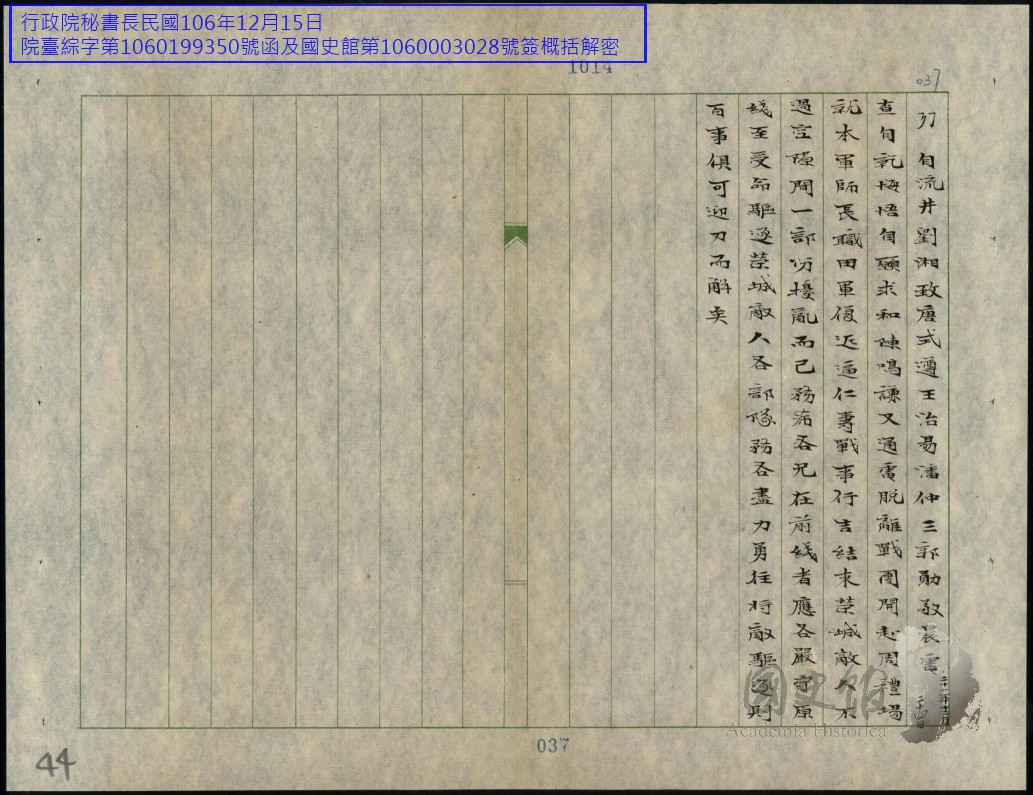 行政院秘書長民國106年12月15日
院臺綜字第1060199350號函及國史館第1060003028號簽概括解密
1014
037
37 自流井劉湘致唐式遵王治易潘仲三郭勛敬晨電二十一年十二月
查自乾悔悟自願求和陳鳴謙又通電脫離戰團開赴周禮場
就本軍師長職田軍復迫逼仁壽戰事行告結束榮城敵人不
過空隙間一部份擾亂而已務希各兄在前綫者應各嚴守原
綫至受命驅逐榮城敵人各部隊務各盡力勇往將敵驅逐則
百事俱可迎刃而解矣
國史館
Academia Historica
037
44